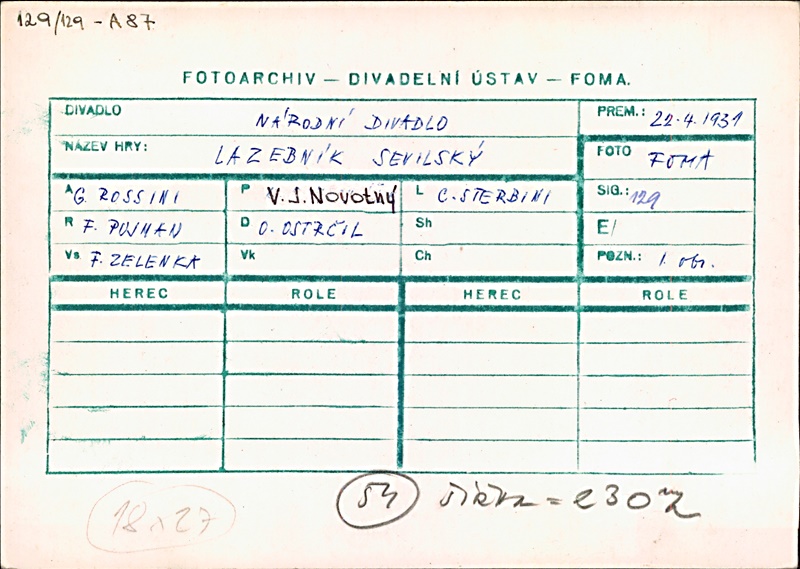 129/129 - A87
FOTOARCHIV — DIVADELNÍ ÚSTAV — FOMA.
DIVADLO NÁRODNÍ DIVADLO PREM.: 22.4.1931
NÁZEV HRY: LAZEBNÍK SEVILSKÝ FOTO FOMA
A G. ROSSINI P V.J.Novotný L C. STERBINI SIG.: 129
R F. PUJMAN D O. OSTRČIL Sh E/
Vs F. ZELENKA Vk Ch POZN.: 1. obr.
HEREC ROLE HEREC ROLE
54 šířka = 230
18 x 27